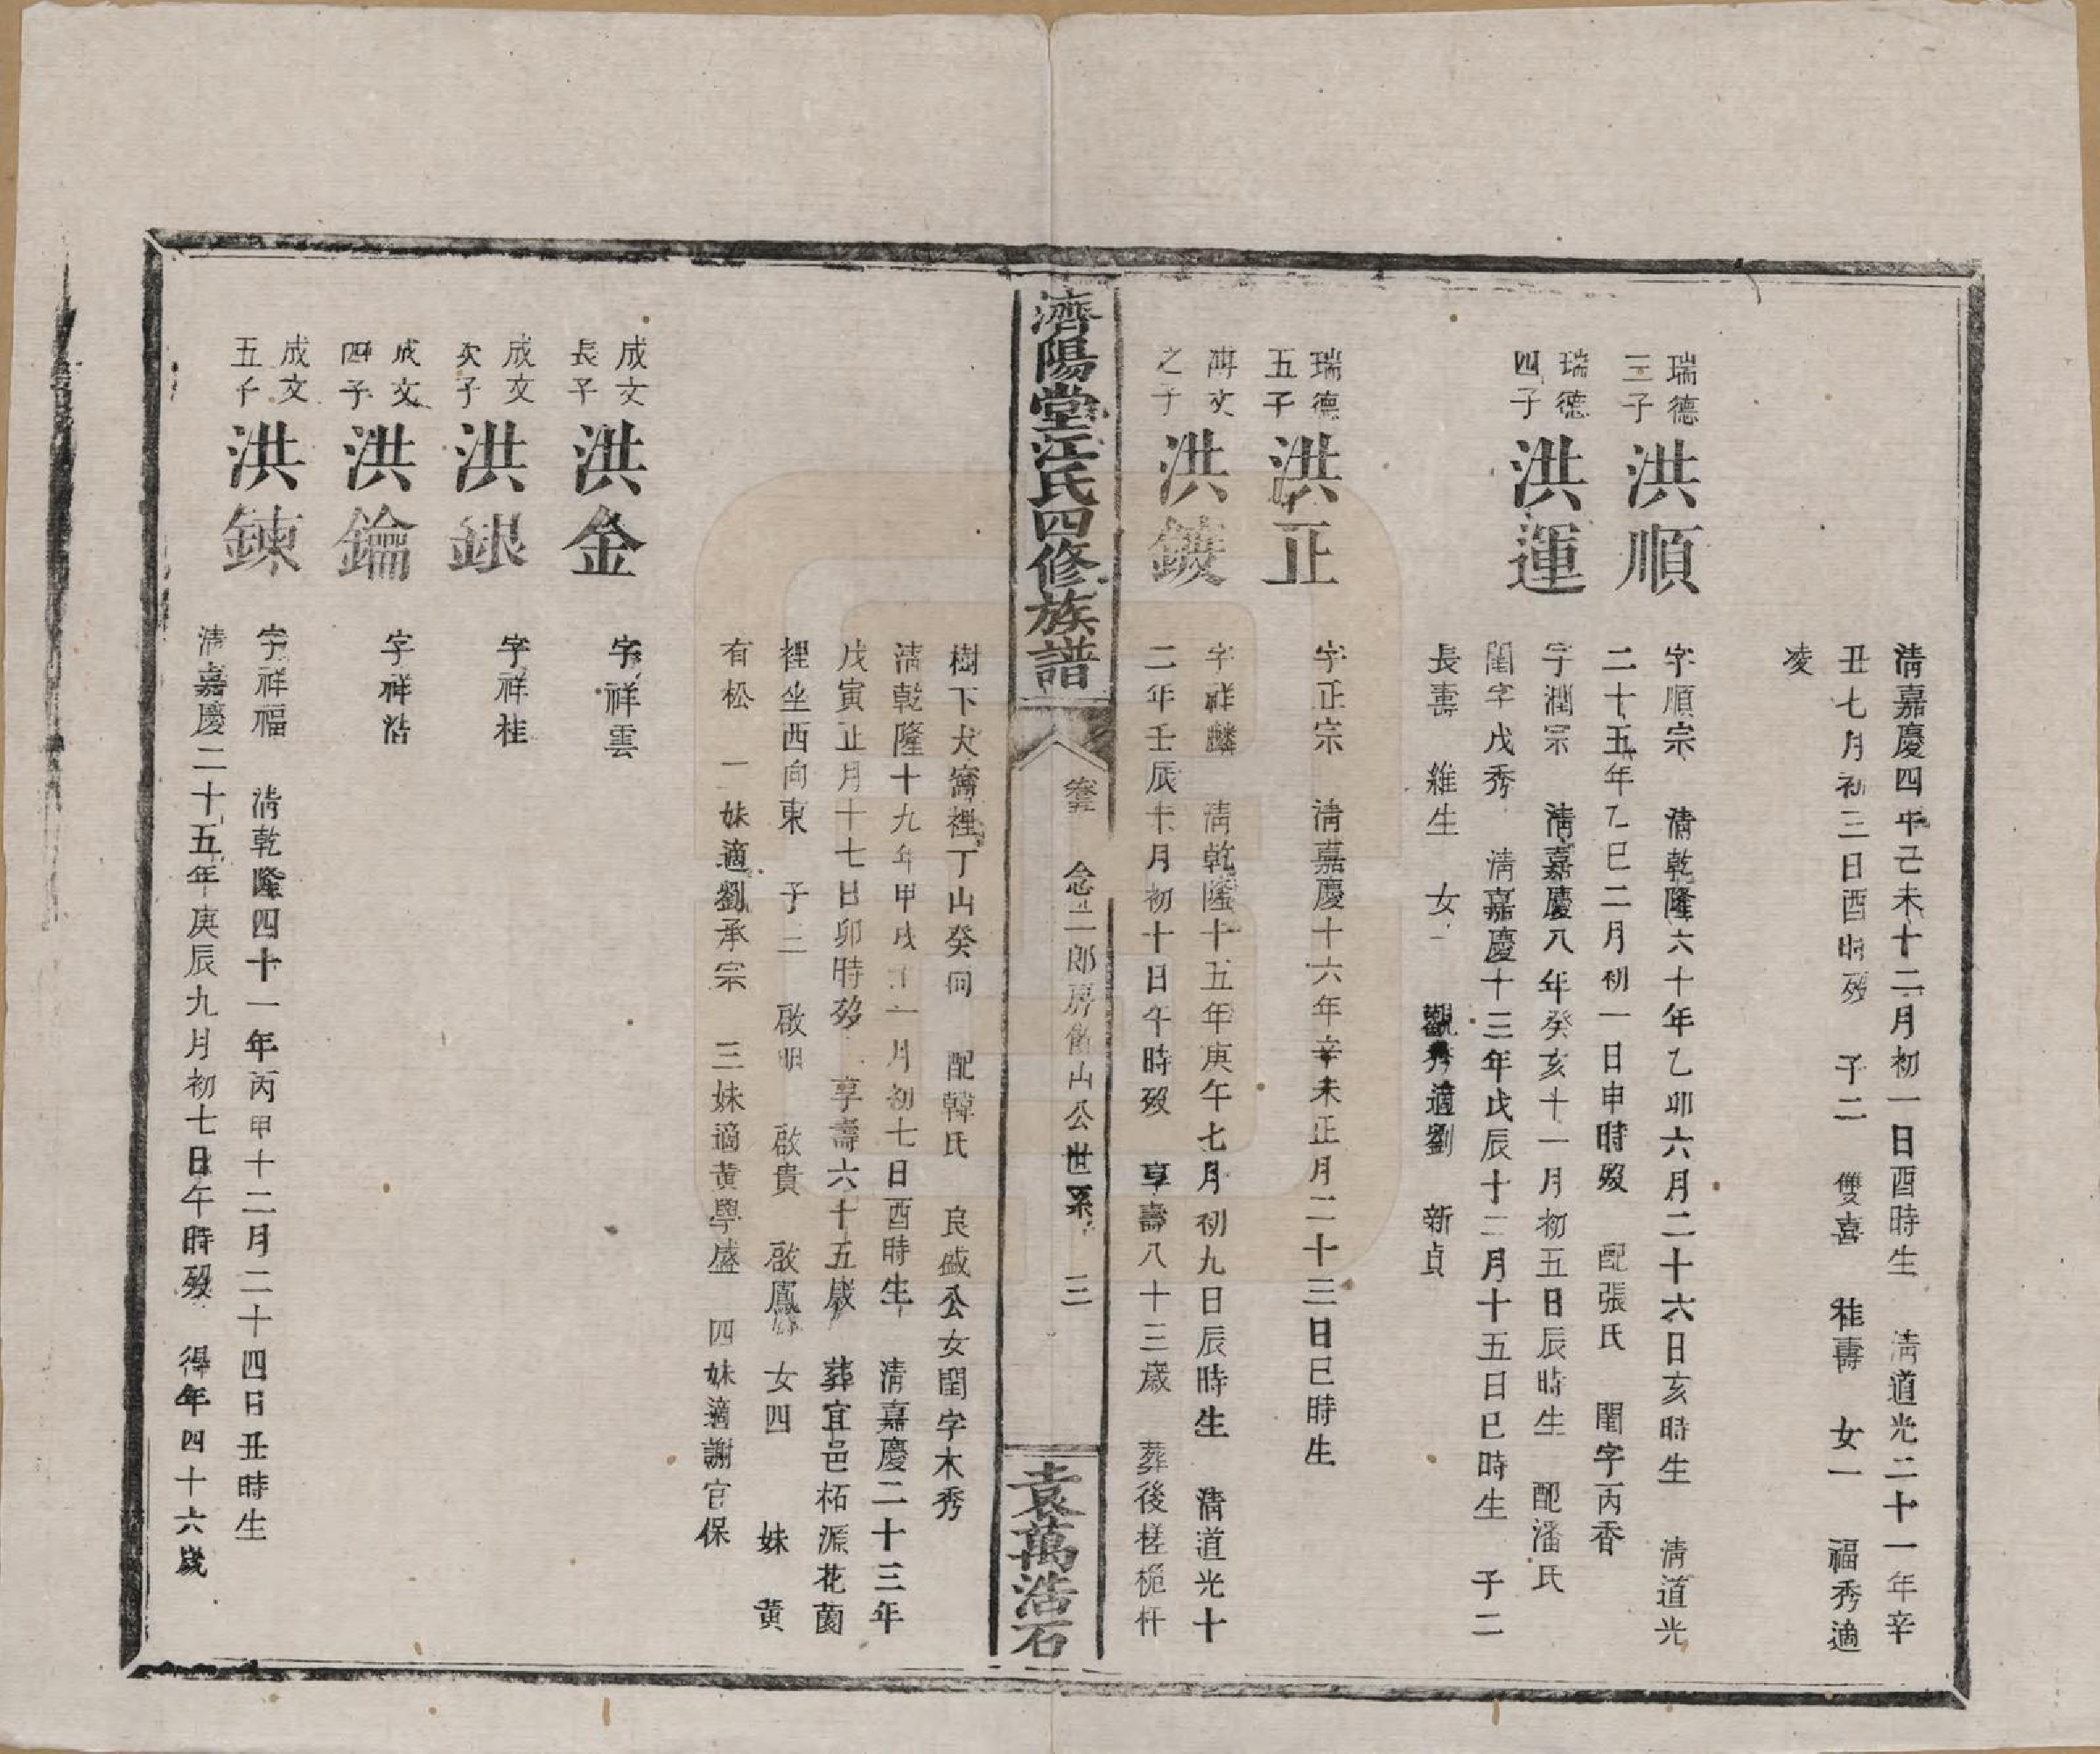 清嘉慶四年己未十二月初一日酉時生 清道光二十一年辛
丑七月初三日酉時殁 子二 雙喜 桂壽 女一 福秀適
凌
瑞德
三子
洪順
字順宗 清乾隆六十年乙卯六月二十六日亥時生 清道光
二十五年乙巳二月初一日申時殁 配張氏 閨字丙香
瑞德
四子
洪運
字潤宗 清嘉慶八年癸亥十一月初五日辰時生 配潘氏
閨字戊秀 清嘉慶十三年戊辰十二月十五日巳時生 子二
長壽 維生 女一 觀秀適劉 新貞
瑞德
五子
洪正
字正宗 清嘉慶十六年辛未正月二十三日巳時生
之子
洪鍍
字祥麟 清乾隆十五年庚午七月初九日辰時生 清道光十
二年壬辰十月初十日午時殁 享壽八十三歲 葬後槎桅杆
濟陽堂江氏四修族譜
念二郎房 山公世系
三
袁萬浩石
樹下犬窩裡丁山癸向 配韓氏 良盛公女閨字木秀
清乾隆十九年甲戌十一月初七日酉時生 清嘉慶二十三年
戊寅正月十七日卯時殁 享壽六十五歲 葬宜邑柘源花薗
裡坐西向東 子三 啟明 啟貴 啟鳳 女四 妹 黄
有松 二妹適劉承宗 三妹適黄學盛 四妹適謝官保
成文
長子
洪金
字祥雲
成文
次子
洪銀
字祥桂
成文
四子
洪鑰
字祥浩
成文
五子
洪鍊
字祥福 清乾隆四十一年丙申十二月二十四日丑時生
清嘉慶二十五年庚辰九月初七日午時殁 得年四十六歲